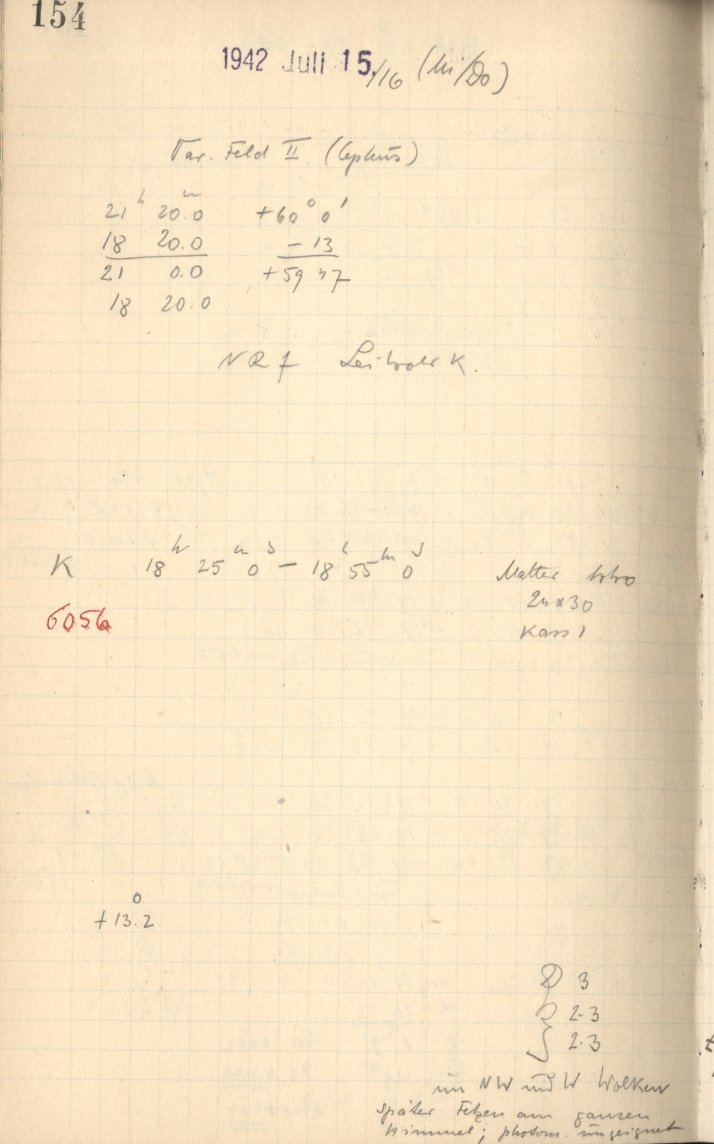 154
1942 Juli 15./16 (Mi/Do)
Var. Feld II (Cepheus)
21 h 20.0 m +60° 0'
18 20.0 – 13
21 0.0 +59 47
18 20.0
NRf K.
K 18 h 25 m 0 s – 18 h 55 m 0 s Matter
6056 24 x 30
Kass 1
+13.2°
3
2.3
2.3
im NW und W Wolken
später Fetzen am ganzen
Himmel; photom. ungeeignet